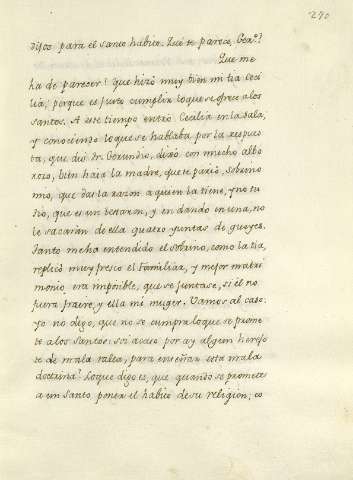 270
dijos para el santo habito. Què te parece, Ger.º?
Que me
ha de parecer? Que hizo muy bien mi tia Ceci
lia, porque es justo cumplir lo que se ofrece a los
santos. A este tiempo entrò Cecilia en la sala,
y conociendo lo que se hablaba por la respues
ta, que diò fr. Gerundio, dixo con mucho albo
rozo, bien haia la madre, que te pariò, sobrino
mio, que das la razon a quien la tiene, y no tu
tio, que es un testaron, y en dando en una, no
le sacaràn de ella quatro juntas de gueyes.
Tanto me ha entendido el sobrino, como la tia,
replicò muy fresco el Familiar, y mejor matri
monio, era imposible, que se juntase, si èl no
fuera fraire, y ella mi muger. Vamos al caso.
Yo no digo, que no se cumpra lo que se prome
te a los Santos: soi acaso por ay algem herejo
te de mala ralea, para enseñar esta mala
doctrina? Lo que digo es, que quando se promete
a un Santo poner el habito de su religion, es